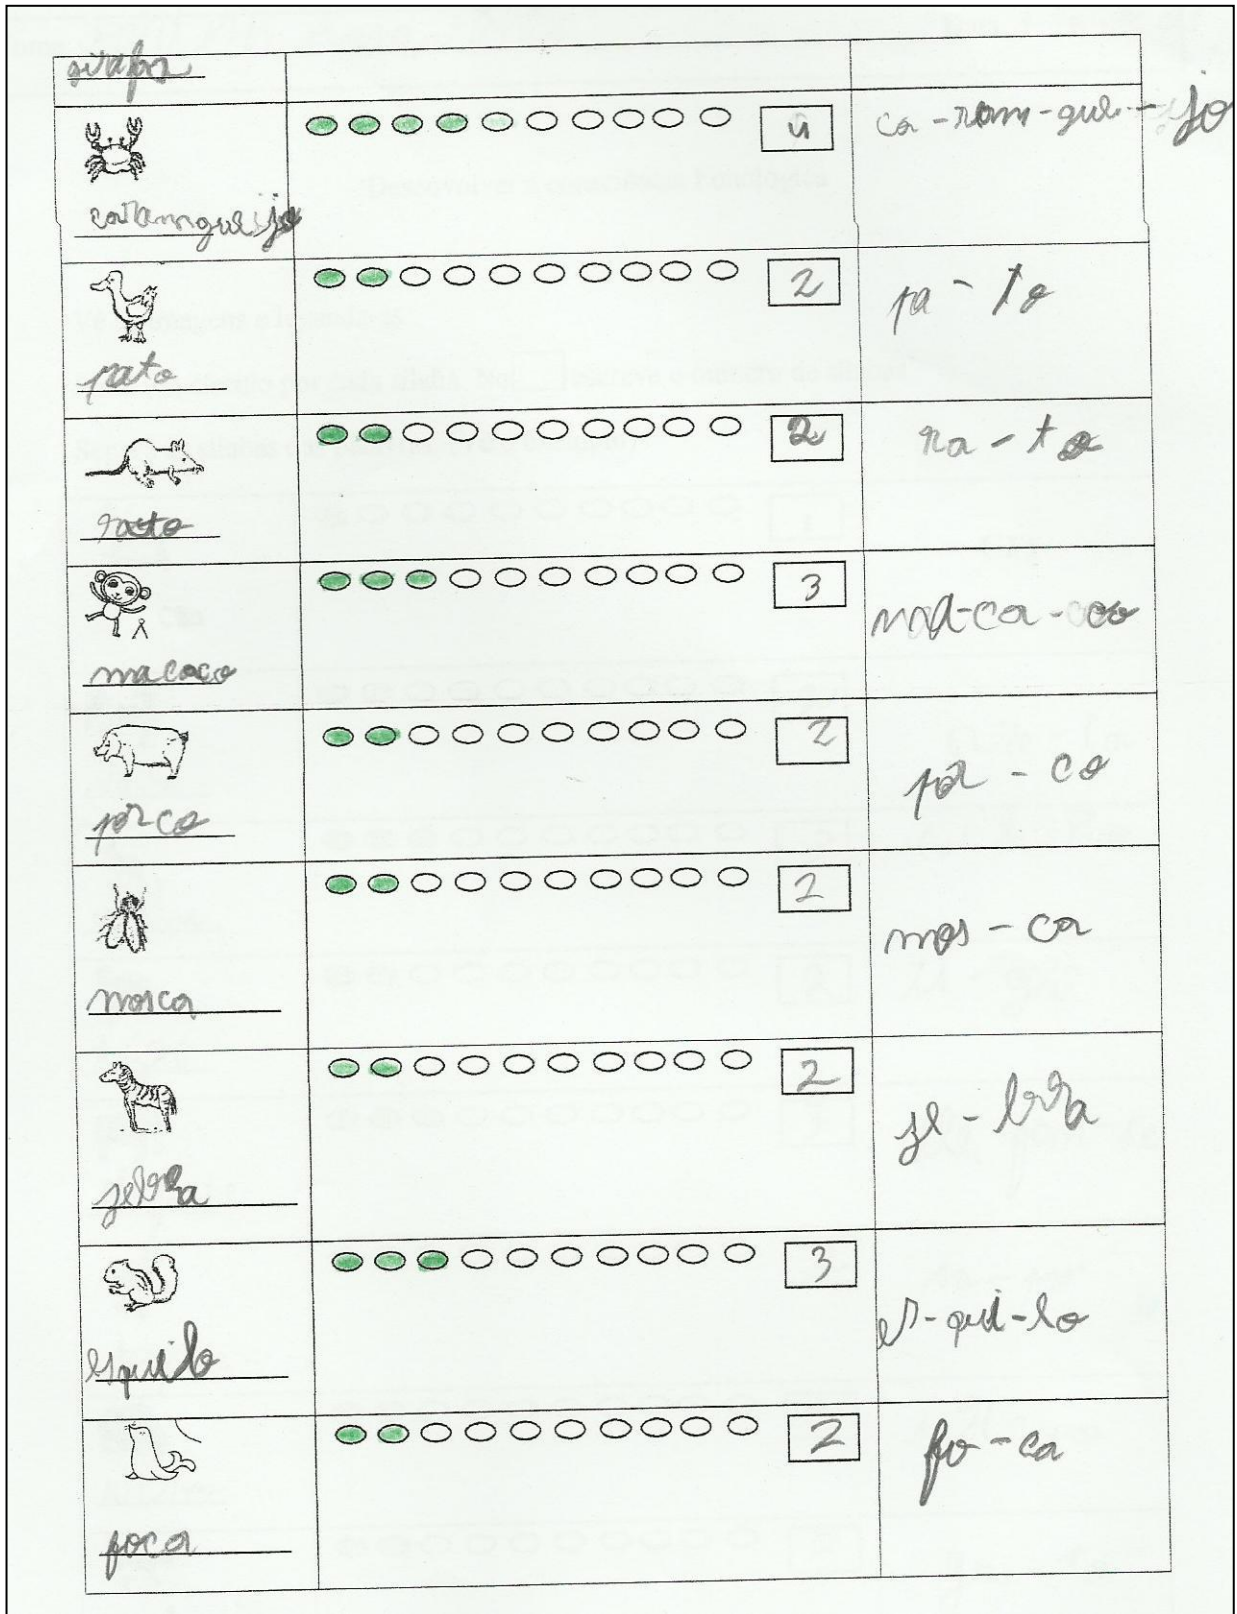 girafa
4
ca-ram-guei-jo
caramgueijo
2
pa-to
pato
2
ra-to
rato
3
ma-ca-co
macaco
2
por-co
porco
2
mos-ca
mosca
2
ze-bra
zebra
3
es-qui-lo
esquilo
2
fo-ca
foca